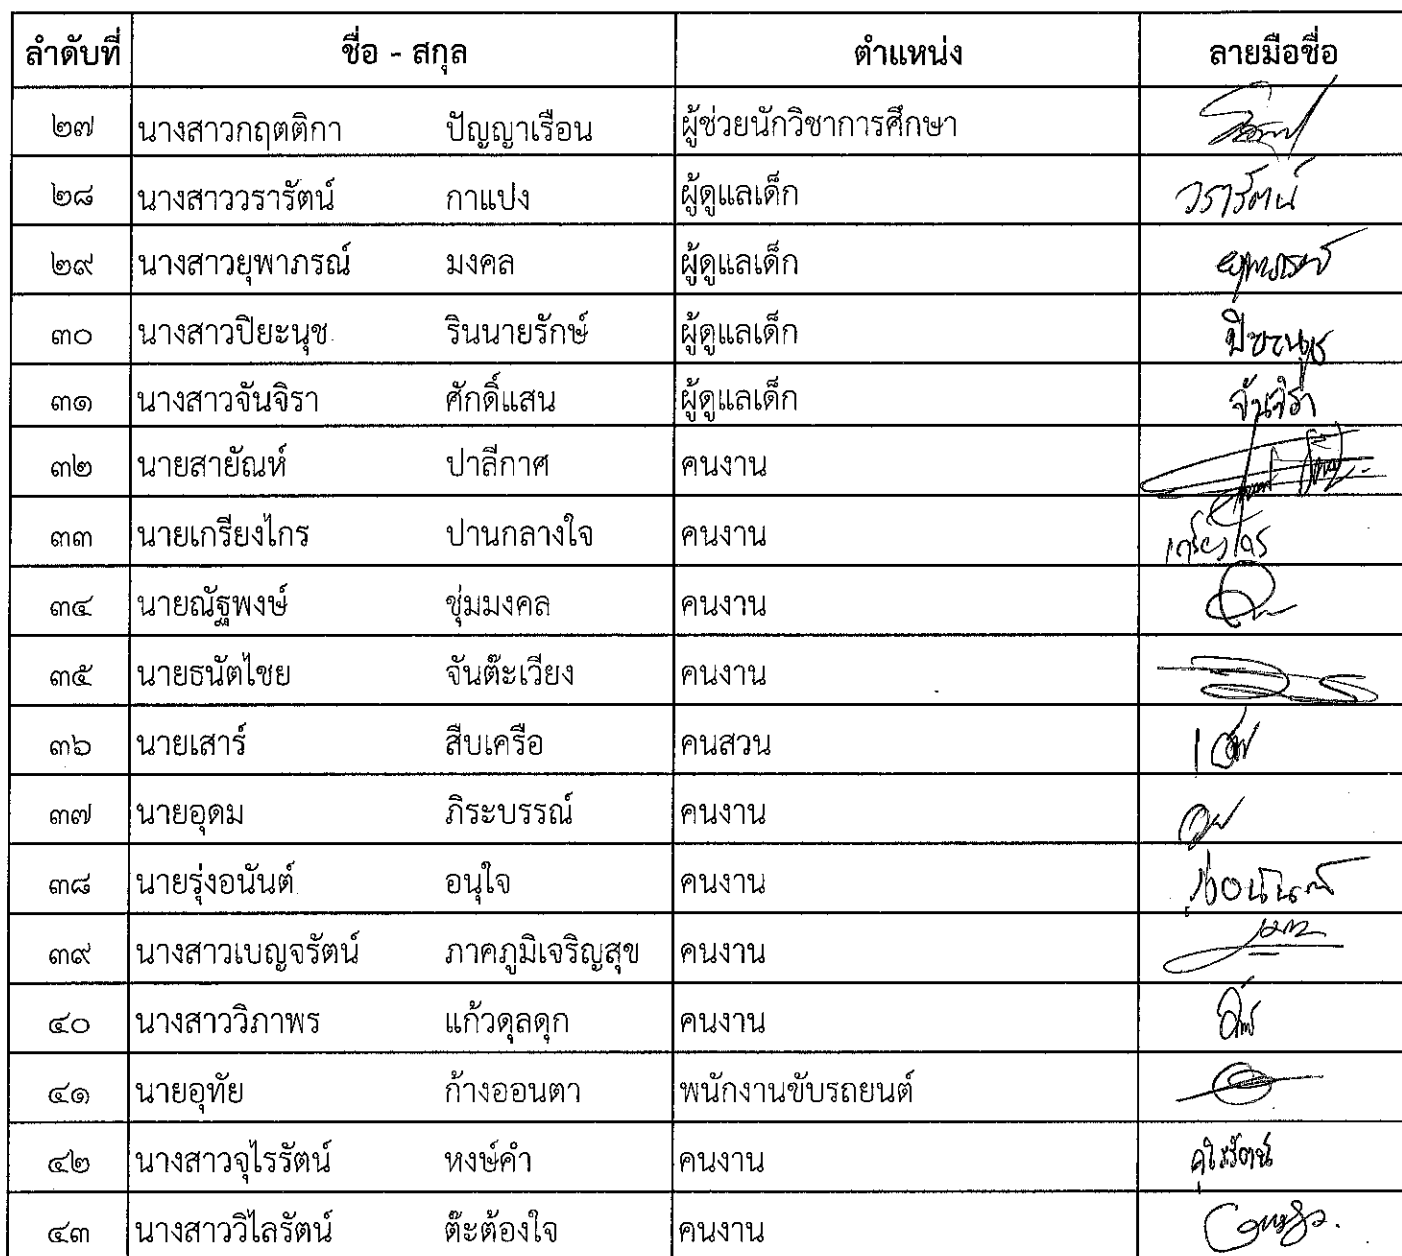 ลำดับที่ ชื่อ - สกุล ตำแหน่ง ลายมือชื่อ
๒๗ นางสาวกฤตติกา ปัญญาเรือน ผู้ช่วยนักวิชาการศึกษา
๒๘ นางสาววรารัตน์ กาแปง ผู้ดูแลเด็ก วรารัตน์
๒๙ นางสาวยุพาภรณ์ มงคล ผู้ดูแลเด็ก ยุพาภรณ์
๓๐ นางสาวปิยะนุช รินนายรักษ์ ผู้ดูแลเด็ก ปิยะนุช
๓๑ นางสาวจันจิรา ศักดิ์แสน ผู้ดูแลเด็ก จันจิรา
๓๒ นายสายัณห์ ปาลีกาศ คนงาน
๓๓ นายเกรียงไกร ปานกลางใจ คนงาน เกรียงไกร
๓๔ นายณัฐพงษ์ ชุ่มมงคล คนงาน
๓๕ นายธนัตไชย จันต๊ะเวียง คนงาน
๓๖ นายเสาร์ สืบเครือ คนสวน
๓๗ นายอุดม ภิระบรรณ์ คนงาน
๓๘ นายรุ่งอนันต์ อนุใจ คนงาน รุ่งอนันต์
๓๙ นางสาวเบญจรัตน์ ภาคภูมิเจริญสุข คนงาน
๔๐ นางสาววิภาพร แก้วดุลดุก คนงาน
๔๑ นายอุทัย ก้างออนตา พนักงานขับรถยนต์
๔๒ นางสาวจุไรรัตน์ หงษ์คำ คนงาน จุไรรัตน์
๔๓ นางสาววิไลรัตน์ ต๊ะต้องใจ คนงาน